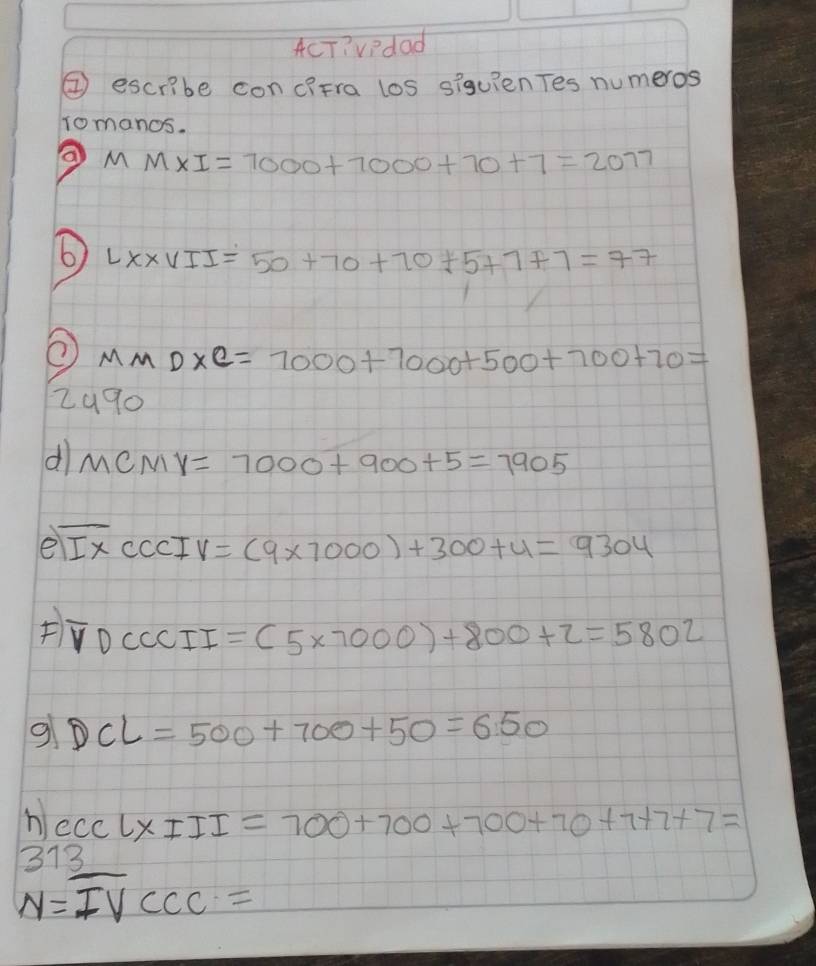 ACTividad
① escribe con cifra los siguientes numeros
romanos.
a) MMXI = 1000+1000+10+1 = 2011
b) LXXVII = 50+10+10+5+1+1 = 77
c) MMDXC = 1000+1000+500+100+10=
2490
d) MCMV = 1000+900+5 = 1905
e) I̅X̅CCCIV = (9x1000)+300+4 = 9304
F) V̅DCCCII = (5x1000)+800+2 = 5802
g) DCL = 500+100+50 = 650
h) CCCLXIII = 100+100+100+10+1+1+1 =
313
N = I̅V̅CCC =